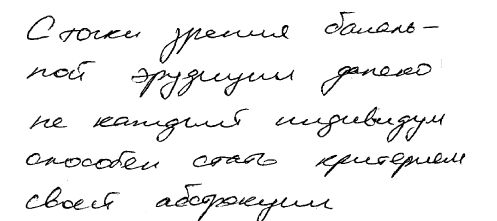 С точки зрения баналь-
ной эрудиции далеко
не каждый индивидум
способен стать критерием
своей абстракции